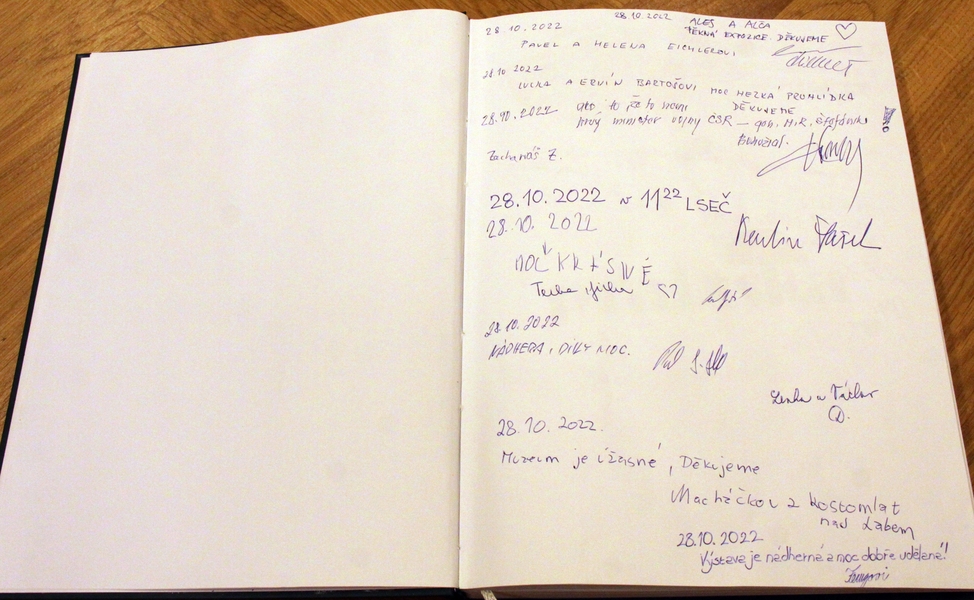 28.10.2022 ALEŠ A ALČA
PĚKNÁ EXPOZICE. DĚKUJEME
28.10.2022
PAVEL A HELENA EICHLEROVI
28.10 2022
LUCKA A ERVÍN BARTOŠOVI MOC HEZKÁ PROHLÍDKA
DĚKUJEME
28.10.2022 ako to je to
ministr vojny ČSR – gen. M.R. Štefánik
Zachariáš Z.
28.10.2022 v 11²² LSEČ
28.10. 2022
MOC KRÁSNÉ
28.10.2022
NÁDHERA, DÍKY MOC.
Lenka a Václav
28.10.2022.
Muzeum je úžasné, Děkujeme
Macháčkovi z Kostomlat
nad Labem
28.10.2022
Výstava je nádherná a moc dobře udělaná!